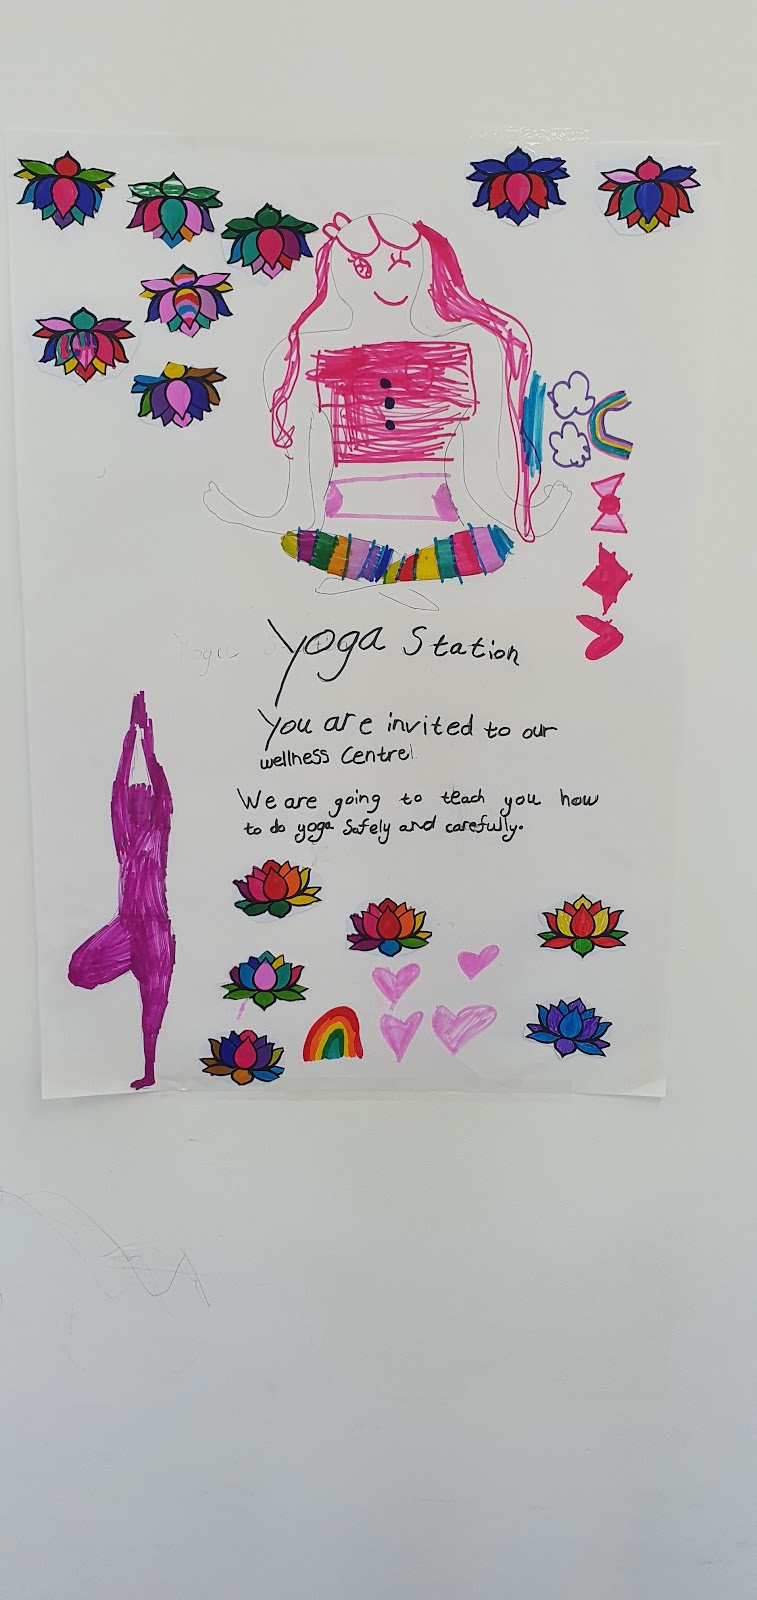 Yoga Station
You are invited to our
wellness Centre!
We are going to teach you how
to do yoga safely and carefully.